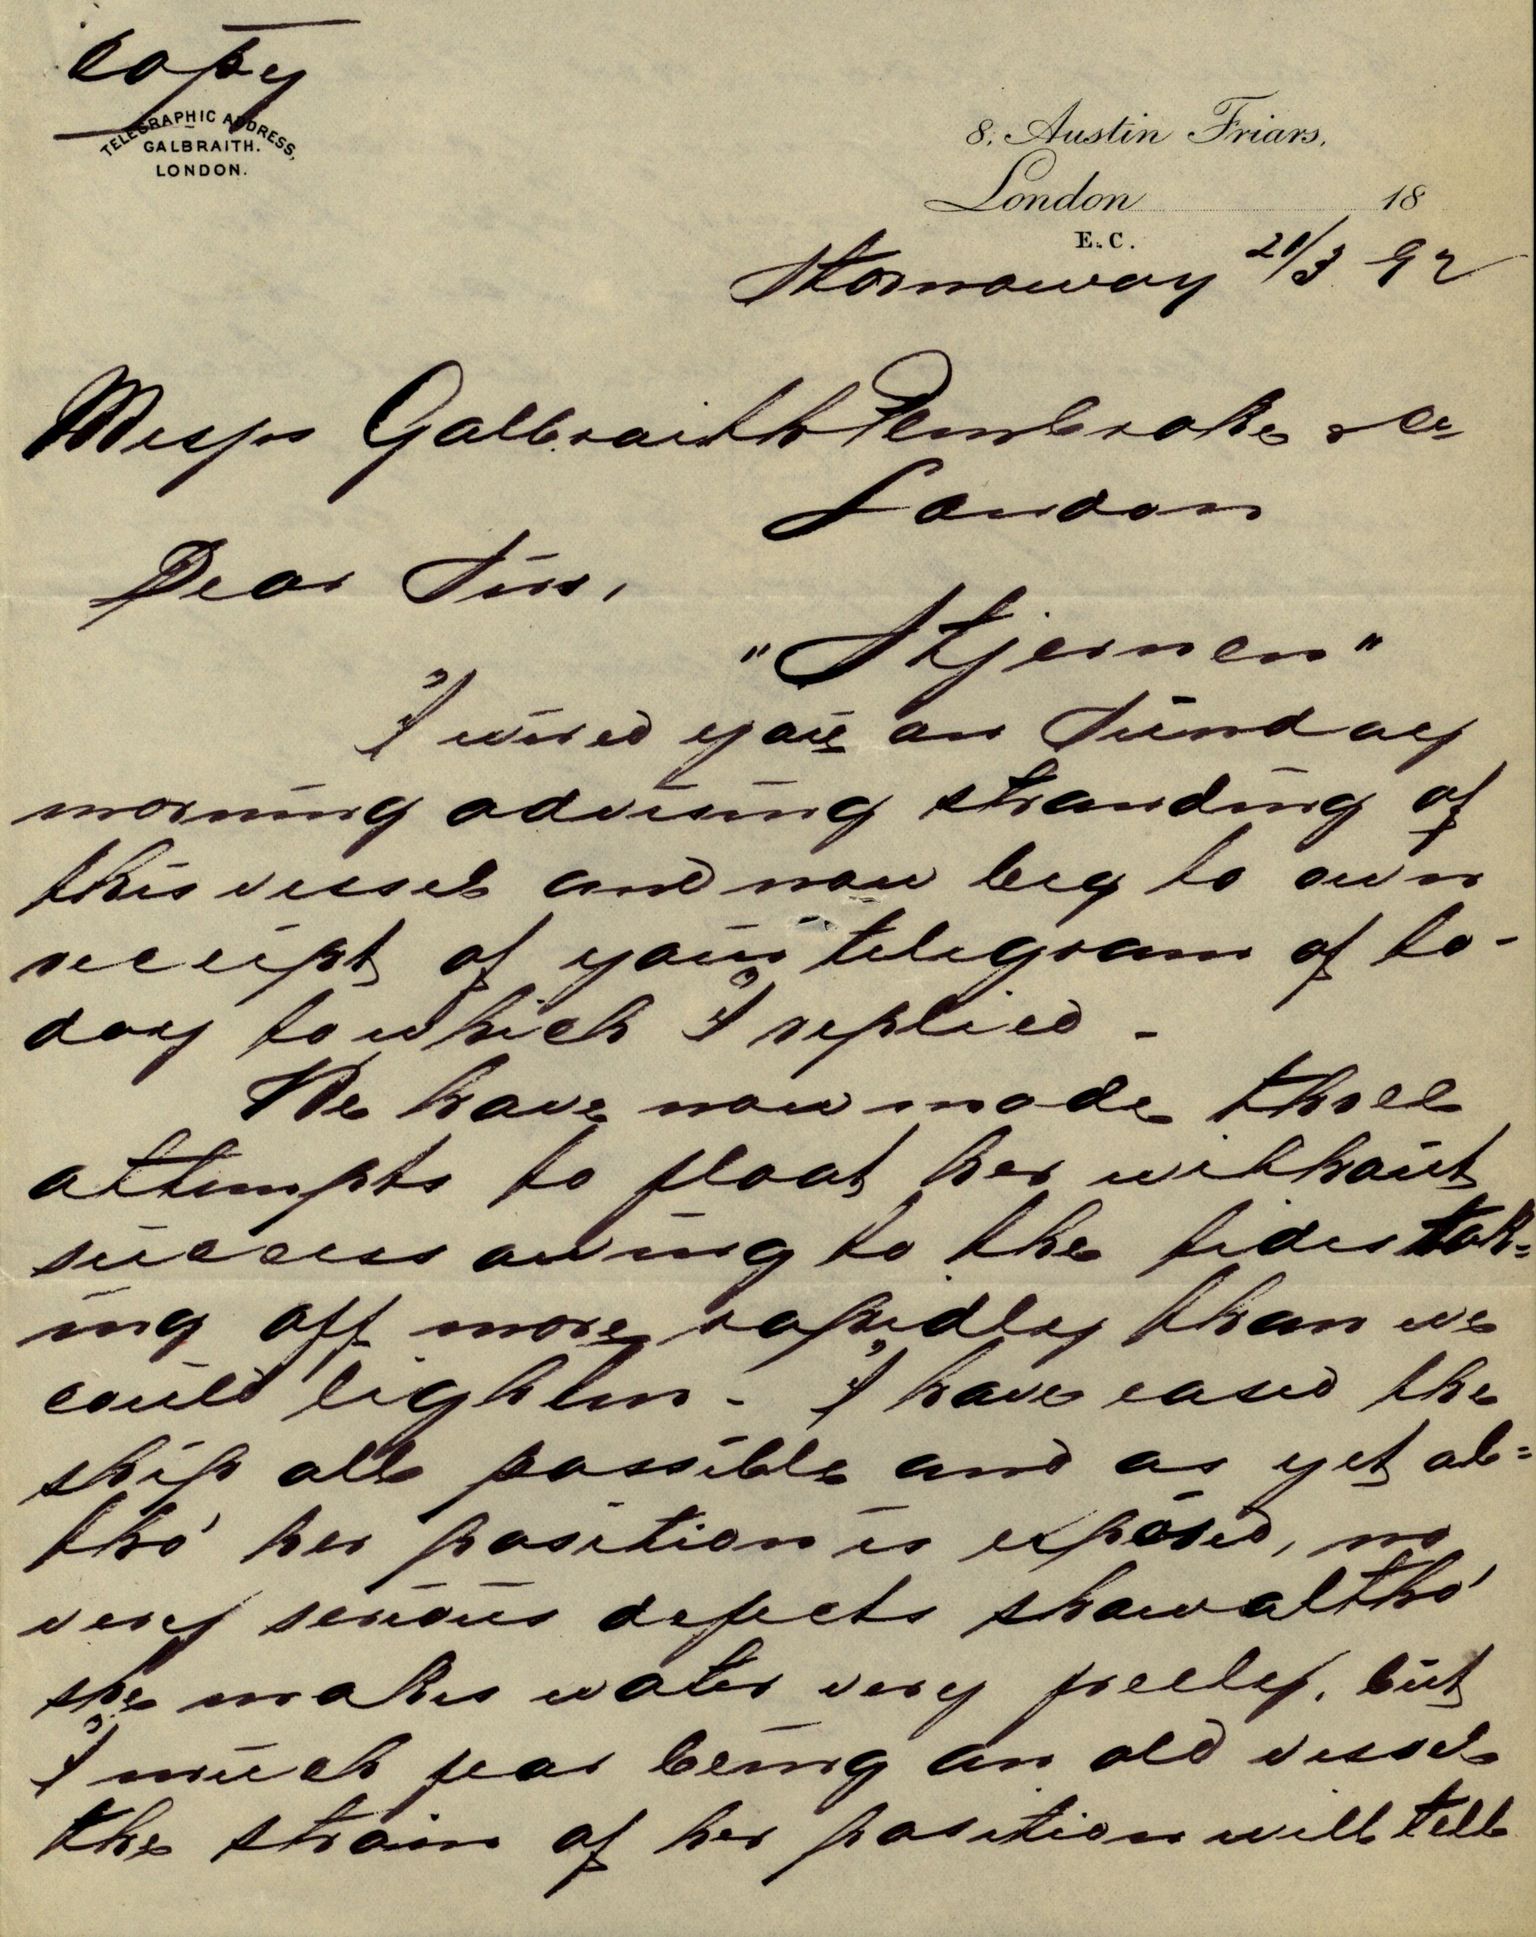 Copy
TELEGRAPHIC ADDRESS,
GALBRAITH.
LONDON.
8, Austin Friars,
London 18
E.C.
Stornoway 21/3 92
Messrs Galbraith Pembroke & Co
London
Dear Sirs,
"Stjernen"
I wired you on Sunday
morning advising stranding of
this vessel and now beg to own
receipt of your telegram of to-
day to which I replied -
We have now made three
attempts to float her without
success owing to the tides tak=
ing off more rapidly than we
could lighten - I have eased the
ship all possible and as yet al=
tho' her position is exposed, no
very serious defects show altho'
she makes water very freely, but
I much fear being an old vessel
the strain of her position will tell